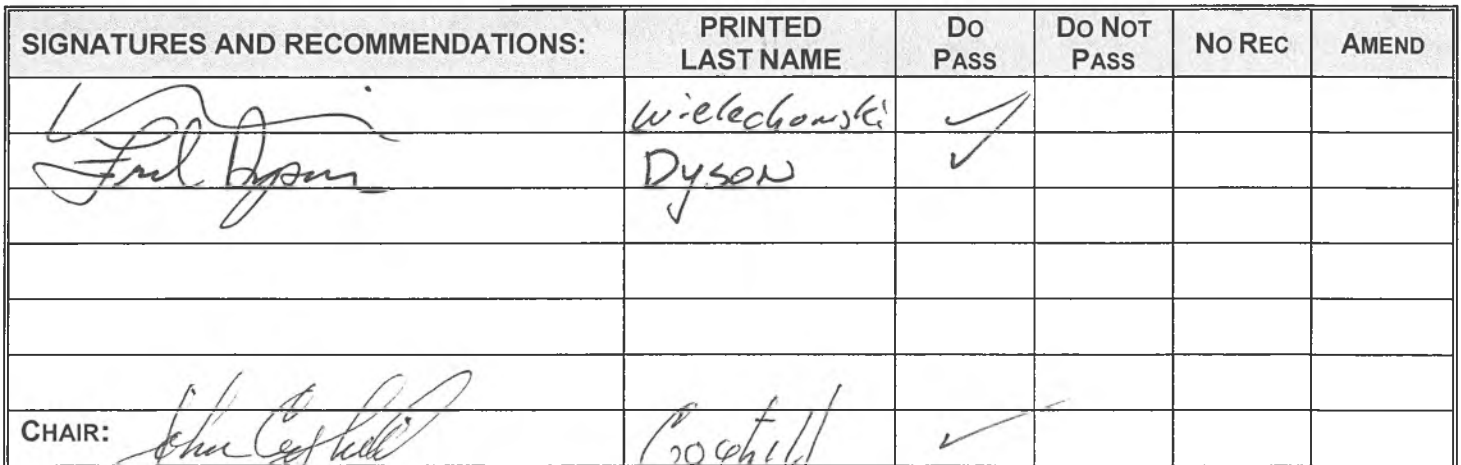 SIGNATURES AND RECOMMENDATIONS: PRINTED LAST NAME DO PASS DO NOT PASS NO REC AMEND
Wielechowski ✓
Fred Dyson Dyson ✓
CHAIR: John Coghill Coghill ✓